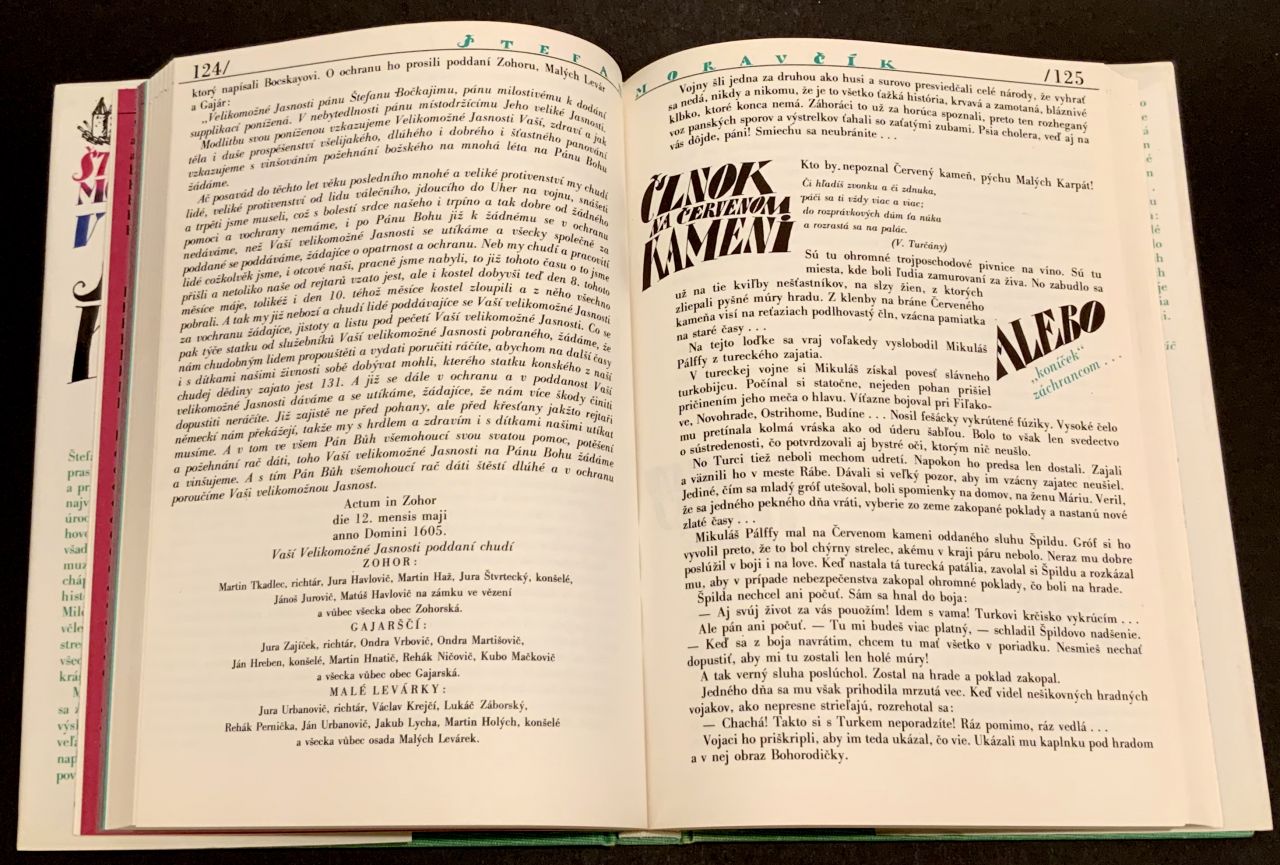 124/
ŠTEFA
ktorý napísali Bocskayovi. O ochranu ho prosili poddaní Zohoru, Malých Levár
a Gajár:
„Velikomožné Jasnosti pánu Štefanu Bočkajimu, pánu milostivému k dodání
supplikací ponížená. V nebytedlnosti pánu místodržícímu Jeho veliké Jasnosti.
Modlitbu svou poníženou vzkazujeme Velikomožné Jasnosti Vaší, zdraví a jak
těla i duše prospěšenství všelijakého, dlúhého i dobrého i šťastného panování
vzkazujeme s vinšováním požehnání božského na mnohá léta na Pánu Bohu
žádáme.
Ač posavád do těchto let věku posledního mnohé a veliké protivenství my chudí
lidé, veliké protivenství od lidu válečního, jdoucího do Uher na vojnu, snášeti
a trpěti jsme museli, což s bolestí srdce našeho i trpíno a tak dobre od žádného
pomoci a vochrany nemáme, i po Pánu Bohu již k žádnému se v ochranu
nedáváme, než Vaší velikomožné Jasnosti se utíkáme a všecky společně za
poddané se poddáváme, žádajíce o opatrnost a ochranu. Neb my chudí a pracovití
lidé cožkolvěk jsme, i otcové naši, pracně jsme nabyli, to již tohoto času o to jsme
přišli a netoliko naše od rejtarů vzato jest, ale i kostel dobyvši teď den 8. tohoto
měsíce máje, tolikéž i den 10. téhož měsíce kostel zloupili a z něho všechno
pobrali. A tak my již nebozí a chudí lidé poddávajíce se Vaší velikomožné Jasnosti
za vochranu žádajíce, jistoty a listu pod pečetí Vaší velikomožné Jasnosti. Co se
pak týče statku od služebníků Vaší velikomožné Jasnosti pobraného, žádáme, že
nám chudobným lidem propouštěti a vydati poručiti ráčíte, abychom na další časy
i s dítkami našimi živnosti sobě dobývat mohli, kterého statku konského z naší
chudej dědiny zajato jest 131. A již se dále v ochranu a v poddanost Vaší
velikomožné Jasnosti dáváme a se utíkáme, žádajíce, že nám více škody činiti
dopustiti neráčíte. Již zajistě ne před pohany, ale před křesťany jakžto rejtaři
německí nám překážejí, takže my s hrdlem a zdravím i s dítkami našimi utíkat
musíme. A v tom ve všem Pán Bůh všemohoucí svou svatou pomoc, potěšení
a požehnání rač dáti, toho Vaší velikomožné Jasnosti na Pánu Bohu žádáme
a vinšujeme. A s tím Pán Bůh všemohoucí rač dáti štěstí dlúhé a v ochranu
poroučíme Vaši velikomožnou Jasnost.
Actum in Zohor
die 12. mensis maji
anno Domini 1605.
Vaší Velikomožné Jasnosti poddaní chudí
ZOHOR:
Martin Tkadlec, richtár, Jura Havlovič, Martin Haž, Jura Štvrtecký, konšelé,
János Jurovič, Matúš Havlovič na zámku ve vězení
a vůbec všecka obec Zohorská.
GAJARŠČÍ:
Jura Zajíček, richtár, Ondra Vrbovič, Ondra Martišovič,
Ján Hreben, konšelé, Martin Hnatič, Rehák Ničovič, Kubo Mačkovič
a všecka vůbec obec Gajarská.
MALÉ LEVÁRKY:
Jura Urbanovič, richtár, Václav Krejčí, Lukáč Záborský,
Rehák Pernička, Ján Urbanovič, Jakub Lycha, Martin Holých, konšelé
a všecka vůbec osada Malých Levárek.
MORAVČÍK
/125
Vojny šli jedna za druhou ako husi a surovo presviedčali celé národy, že vyhrať
sa nedá, nikdy a nikomu, že je to všetko ťažká história, krvavá a zamotaná, bláznivé
klbko, ktoré konca nemá. Záhoráci to už za horúca spoznali, preto ten rozheganý
voz panských sporov a výstrelkov ťahali so zaťatými zubami. Psia cholera, veď aj na
vás dôjde, páni! Smiechu sa neubránite . . .
ČLNOK
NA ČERVENOM
KAMENI
Kto by nepoznal Červený kameň, pýchu Malých Karpát!
Či hľadíš zvonku a či zdnuka,
páči sa ti vždy viac a viac;
do rozprávkových dúm ťa núka
a rozrastá sa na palác.
(V. Turčány)
Sú tu ohromné trojposchodové pivnice na víno. Sú tu
miesta, kde boli ľudia zamurovaní za živa. No zabudlo sa
už na tie kviľby nešťastníkov, na slzy žien, z ktorých
zliepali pyšné múry hradu. Z klenby na bráne Červeného
kameňa visí na reťaziach podlhovastý čln, vzácna pamiatka
na staré časy . . .
ALEBO
„koníček“
záchrancom . . .
Na tejto loďke sa vraj voľakedy vyslobodil Mikuláš
Pálffy z tureckého zajatia.
V tureckej vojne si Mikuláš získal povesť slávneho
turkobijcu. Počínal si statočne, nejeden pohan prišiel
pričinením jeho meča o hlavu. Víťazne bojoval pri Fiľako-
ve, Novohrade, Ostrihome, Budíne . . . Nosil fešácky vykrútené fúziky. Vysoké čelo
mu pretínala kolmá vráska ako od úderu šabľou. Bolo to však len svedectvo
o sústredenosti, čo potvrdzovali aj bystré oči, ktorým nič neušlo.
No Turci tiež neboli mechom udretí. Napokon ho predsa len dostali. Zajali
a väznili ho v meste Rábe. Dávali si veľký pozor, aby im vzácny zajatec neušiel.
Jediné, čím sa mladý gróf utešoval, boli spomienky na domov, na ženu Máriu. Veril,
že sa jedného pekného dňa vráti, vyberie zo zeme zakopané poklady a nastanú nové
zlaté časy . . .
Mikuláš Pálffy mal na Červenom kameni oddaného sluhu Špildu. Gróf si ho
vyvolil preto, že to bol chýrny strelec, akému v kraji páru nebolo. Neraz mu dobre
poslúžil v boji i na love. Keď nastala tá turecká patália, zavolal si Špildu a rozkázal
mu, aby v prípade nebezpečenstva zakopal ohromné poklady, čo boli na hrade.
Špilda nechcel ani počuť. Sám sa hnal do boja:
— Aj svúj život za vás pouožím! Idem s vama! Turkovi krčisko vykrúcím . . .
Ale pán ani počuť. — Tu mi budeš viac platný, — schladil Špildovo nadšenie.
— Keď sa z boja navrátim, chcem tu mať všetko v poriadku. Nesmieš nechať
dopustiť, aby mi tu zostali len holé múry!
A tak verný sluha poslúchol. Zostal na hrade a poklad zakopal.
Jedného dňa sa mu však prihodila mrzutá vec. Keď videl nešikovných hradných
vojakov, ako nepresne strieľajú, rozrehotal sa:
— Chachá! Takto si s Turkem neporadzíte! Ráz pomimo, ráz vedlá . . .
Vojaci ho priškripli, aby im teda ukázal, čo vie. Ukázali mu kaplnku pod hradom
a v nej obraz Bohorodičky.